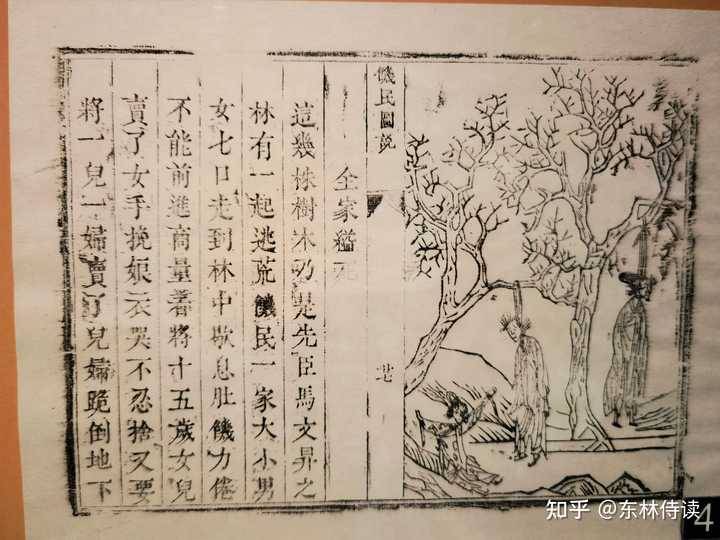 饑民圖說
廿
全家縊死
這幾株樹木乃是先臣馬文昇之
林有一起逃荒饑民一家大小男
女七口走到林中歇息肚饑力倦
不能前進商量著將十五歲女兒
賣了女手挽娘衣哭不忍捨又要
將一兒一婦賣了兒婦跪倒地下
知乎 @东林侍读
4